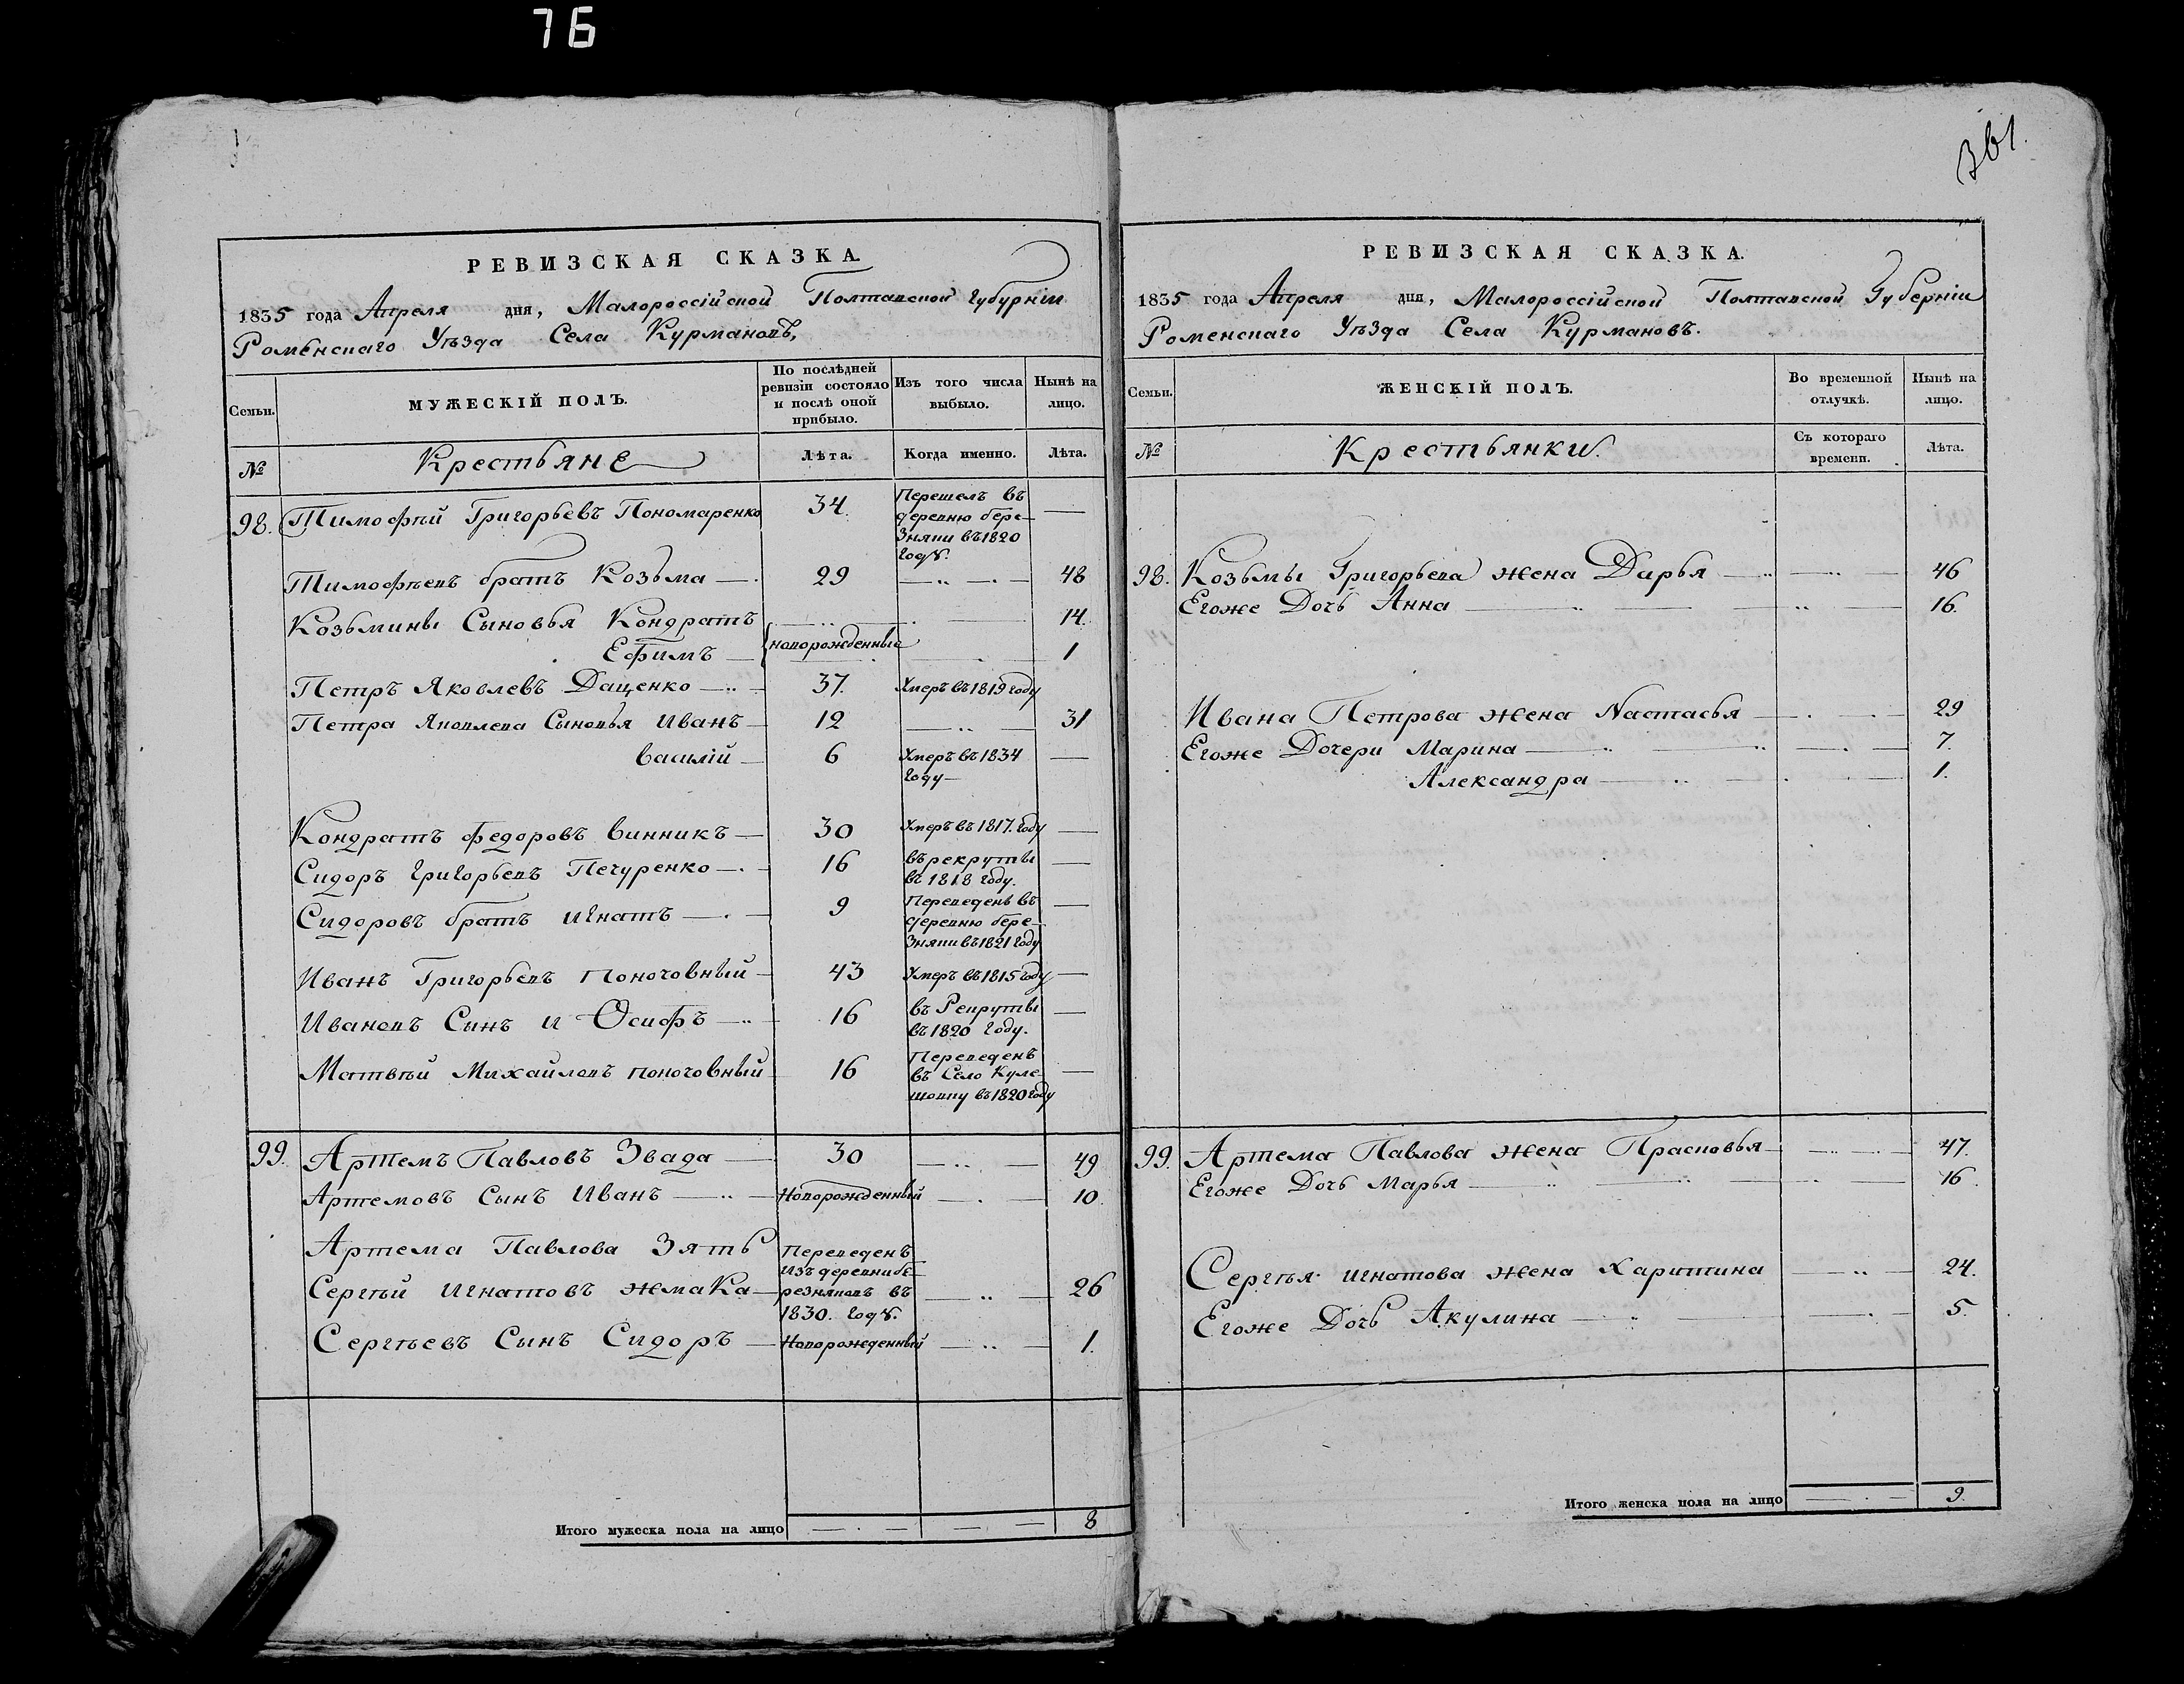 76
361.
РЕВИЗСКАЯ СКАЗКА.
1835 года Апреля дня, Малороссійской Полтавской Губурніи
Роменскаго Уѣзда Села Курмановъ,
Семьи.
МУЖЕСКІЙ ПОЛЪ.
По послѣдней ревизіи состояло и послѣ оной прибыло.
Изъ того числа выбыло.
Нынѣ на лицо.
№
Крестьяне
Лѣта.
Когда именно.
Лѣта.
98. Тимофѣй Григорьевъ Пономаренко 34. Перешелъ въ
деревню бере-
зняки въ 1820
году.
Тимофѣевъ братъ Козьма 29 48
Козьмины Сыновья Кондратъ 14.
Ефимъ новорожденные 1
Петръ Яковлевъ Даценко 37. Умеръ въ 1819 году
Петра Яковлева Сыновья Иванъ 12 31
василій 6 Умеръ въ 1834
году
Кондратъ Федоровъ винникъ 30 Умеръ въ 1817. году
Сидоръ Григорьевъ Печуренко 16 въ рекруты
въ 1818 году.
Сидоровъ братъ игнатъ 9 Переведенъ въ
деревню бере-
зняки въ 1821 году
Иванъ Григорьевъ поночовный 43 Умеръ въ 1815 году
Ивановъ Сынъ и Осифъ 16 въ Рекруты
въ 1820 году.
Матвѣй Михайловъ поночовный 16 Переведенъ
въ Село Куле-
шовку въ 1820 году
99. Артемъ Павловъ Звада 30 49
Артемовъ Сынъ Иванъ Новорожденный 10.
Артема Павлова Зять Переведенъ
изъ деревни бе-
Сергѣй игнатовъ жмака резняковъ въ 26
1830. году.
Сергѣевъ Сынъ Сидоръ Новорожденный 1.
Итого мужеска пола на лицо 8
РЕВИЗСКАЯ СКАЗКА.
1835 года Апреля дня, Малороссійской Полтавской Губерніи
Роменскаго Уѣзда Села Курмановъ.
Семьи.
ЖЕНСКІЙ ПОЛЪ.
Во временной отлучкѣ.
Нынѣ на лицо.
№
Крестьянки.
Съ котораго времени.
Лѣта.
98. Козьмы Григорьева жена Дарья 46
Егоже Дочь Анна 16.
Ивана Петрова жена Настасья 29
Егоже Дочери Марина 7.
Александра 1.
99. Артема Павлова жена Прасковья 47.
Егоже Дочь Марья 16.
Сергѣя игнатова жена Харитина 24.
Егоже Дочь Акулина 5
Итого женска пола на лицо 9.